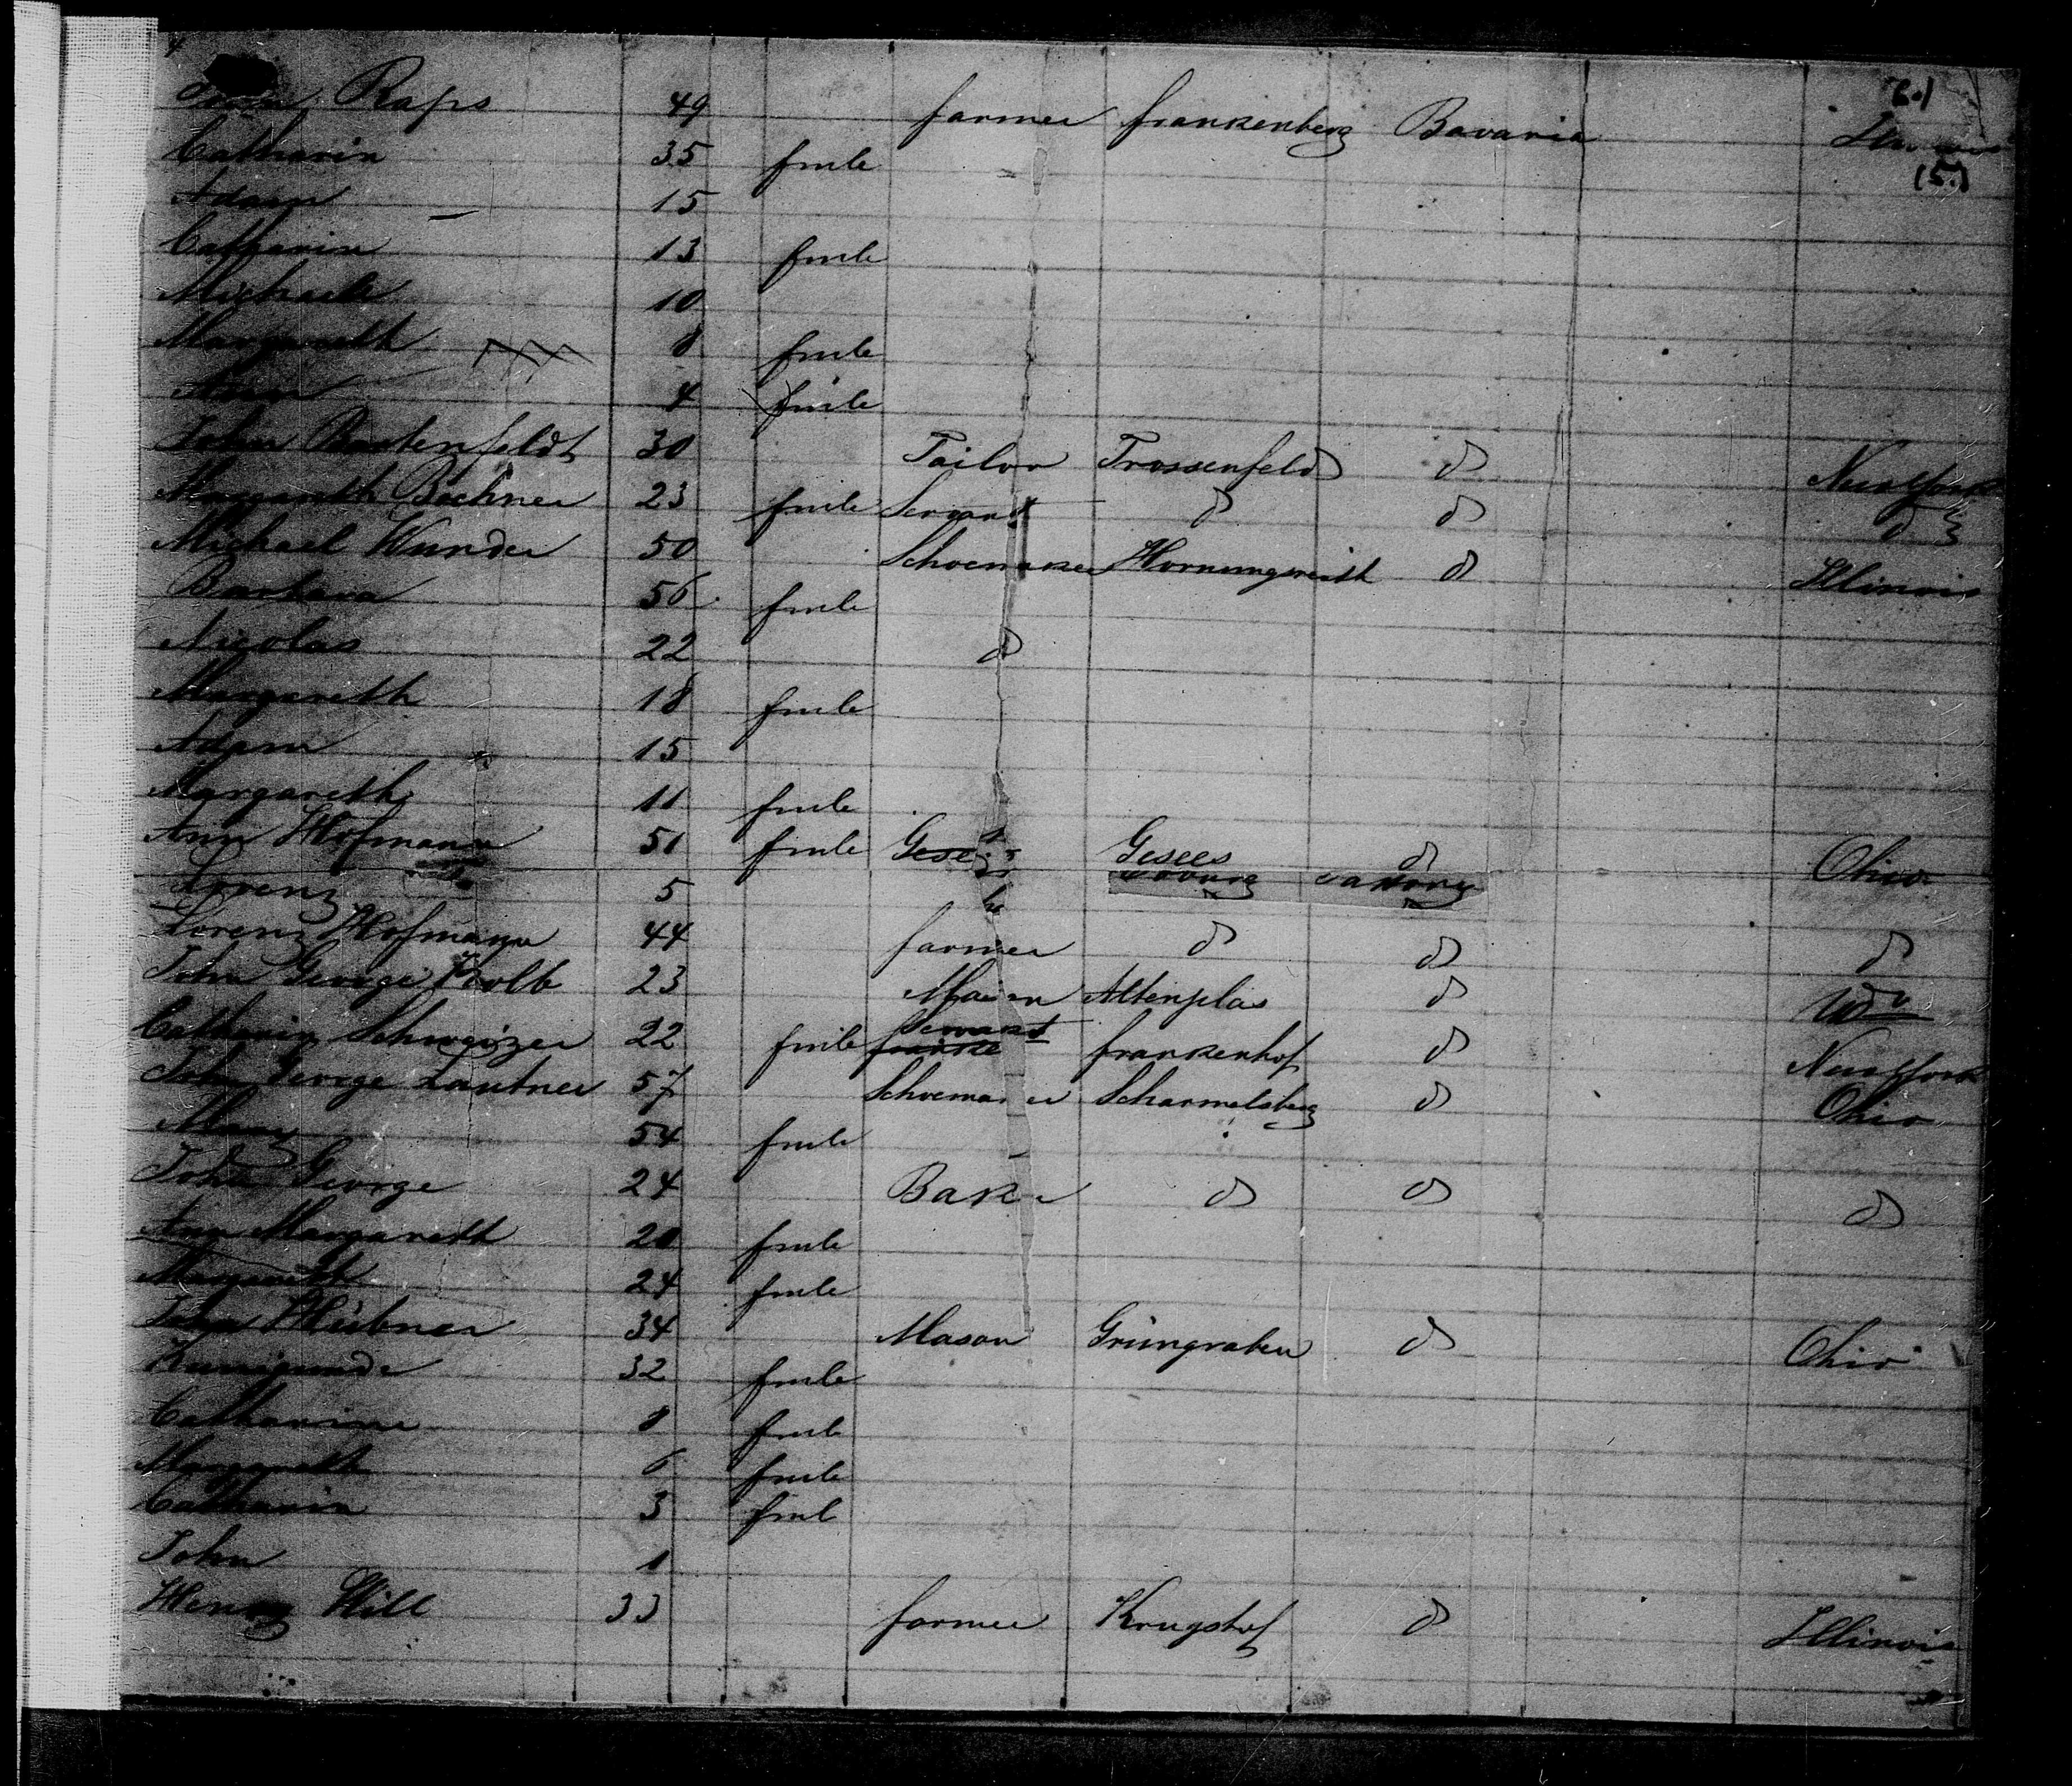 6.)
Raps 49 farmer frankenberg Bavaria
(5.)
Catharin 35 fmle
Adam 15
Catharin 13 fmle
Michael 10
Margareth 8 fmle
Ann 4 fmle
John Bartenfeldt 30 Tailor Trossenfeld d New York
Margareth Bachner 23 fmle Servant d d d
Michael Wunder 50 Schoemaker Hornungsreith d Illinois
Barbara 56 fmle
Nicolas 22 d
Margareth 18 fmle
Adam 15
Margareth 11 fmle
Ann Hofmann 51 fmle Gesees d Ohio
Lorenz 5
Lorenz Hofmann 44 farmer d d d
John George Kolb 23 Mason Altenplos d
Servant
Catharin Schweizer 22 fmle frankenhof d New York
John George Lautner 57 Schoemaker Scharmelsberg d Ohio
Mary 54 fmle
John George 24 Baker d d d
Ann Margareth 20 fmle
Margareth 24 fmle
John Hübner 34 Mason Grüngraben d Ohio
Kunigunde 32 fmle
Catharine 8 fmle
Margareth 6 fmle
Catharin 3 fmle
John 1
Henry Hill 33 farmer Krugshof d Illinois